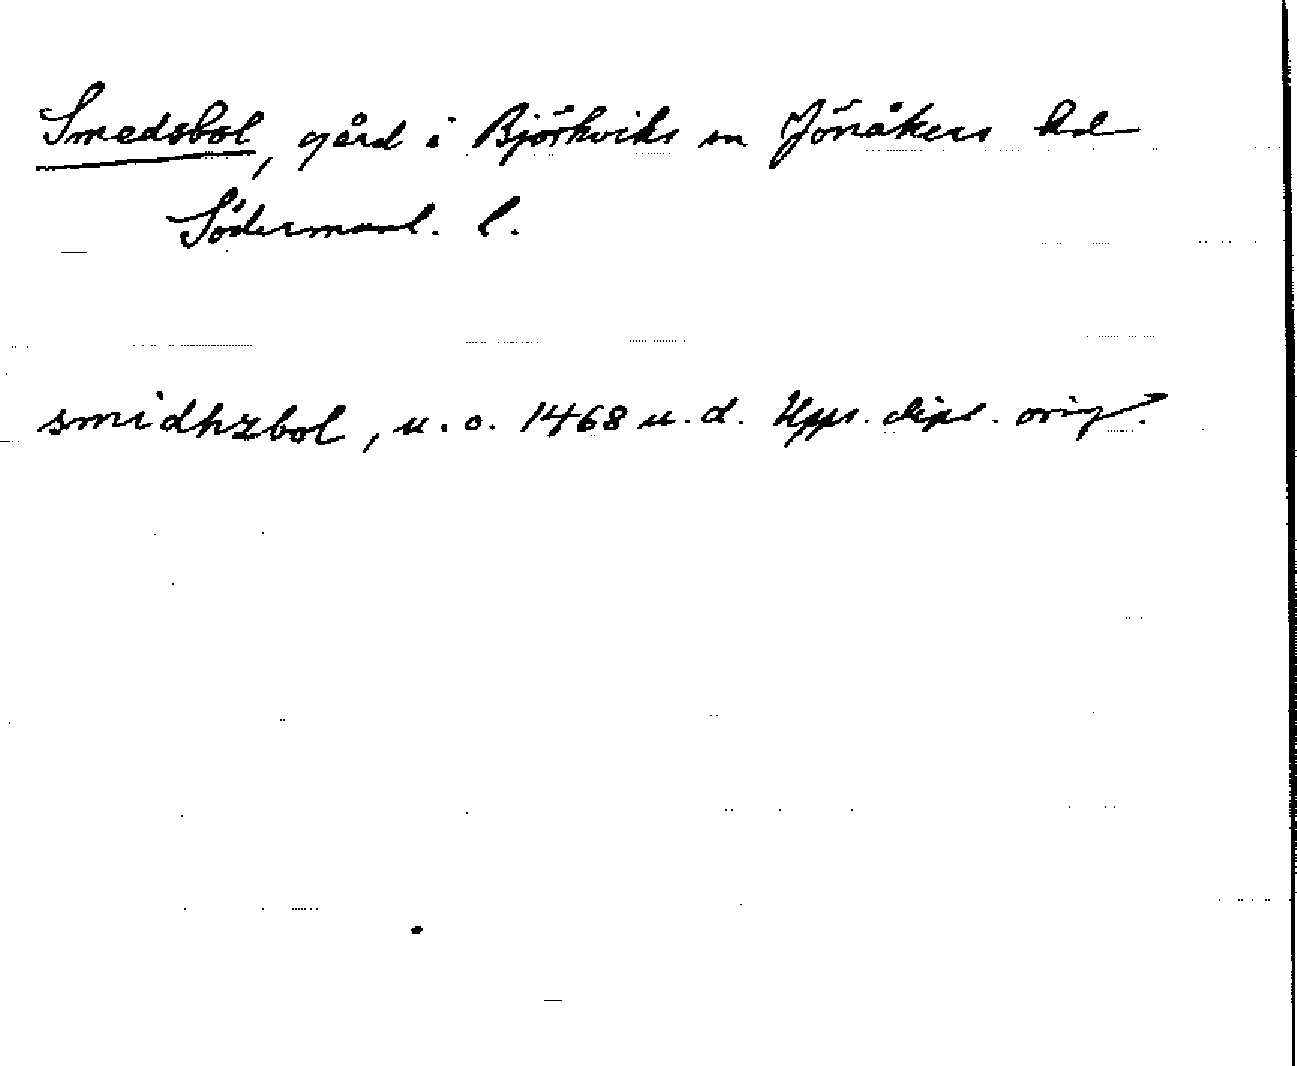 Smedsbol, gård i Björkviks sn Jönåkers hd
Södermanl. l.
smidhzbol, u. o. 1468 u. d. Upps. dipl. orig.